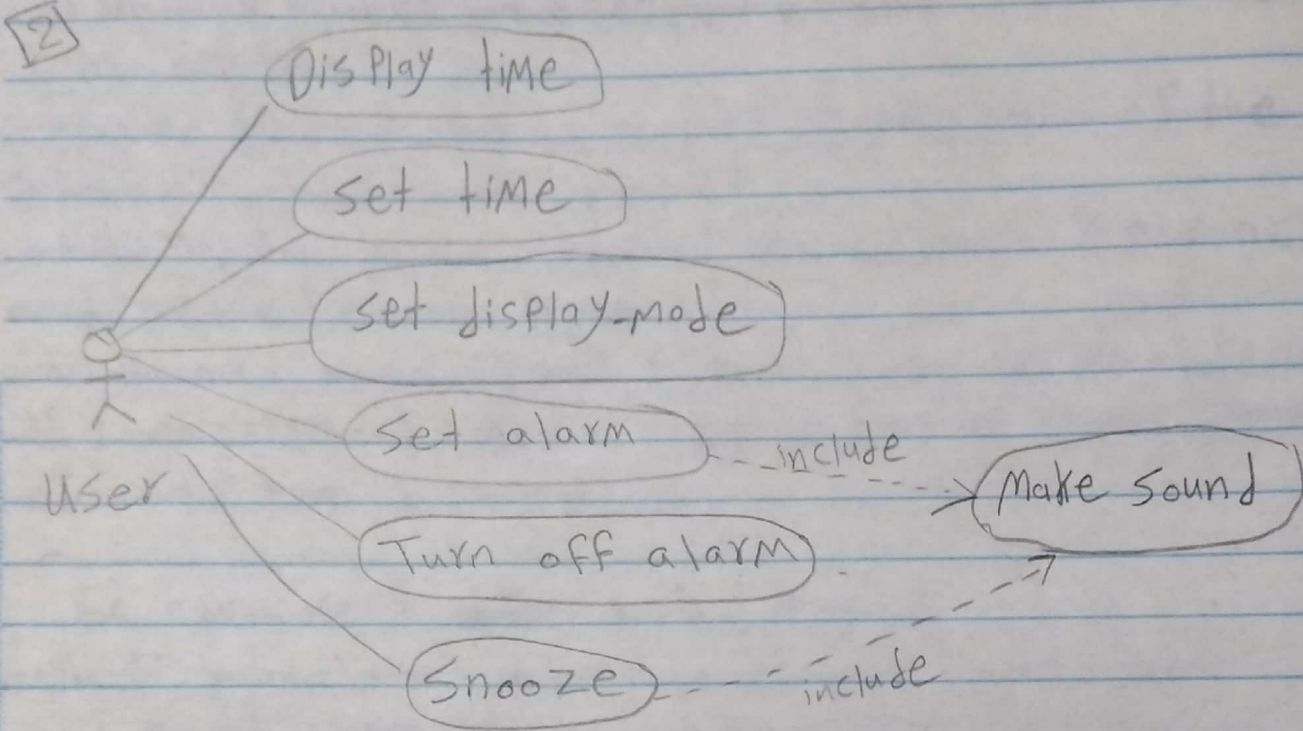 2
Display time
set time
set display-mode
set alarm
include
Make sound
User
Turn off alarm
Snooze
include